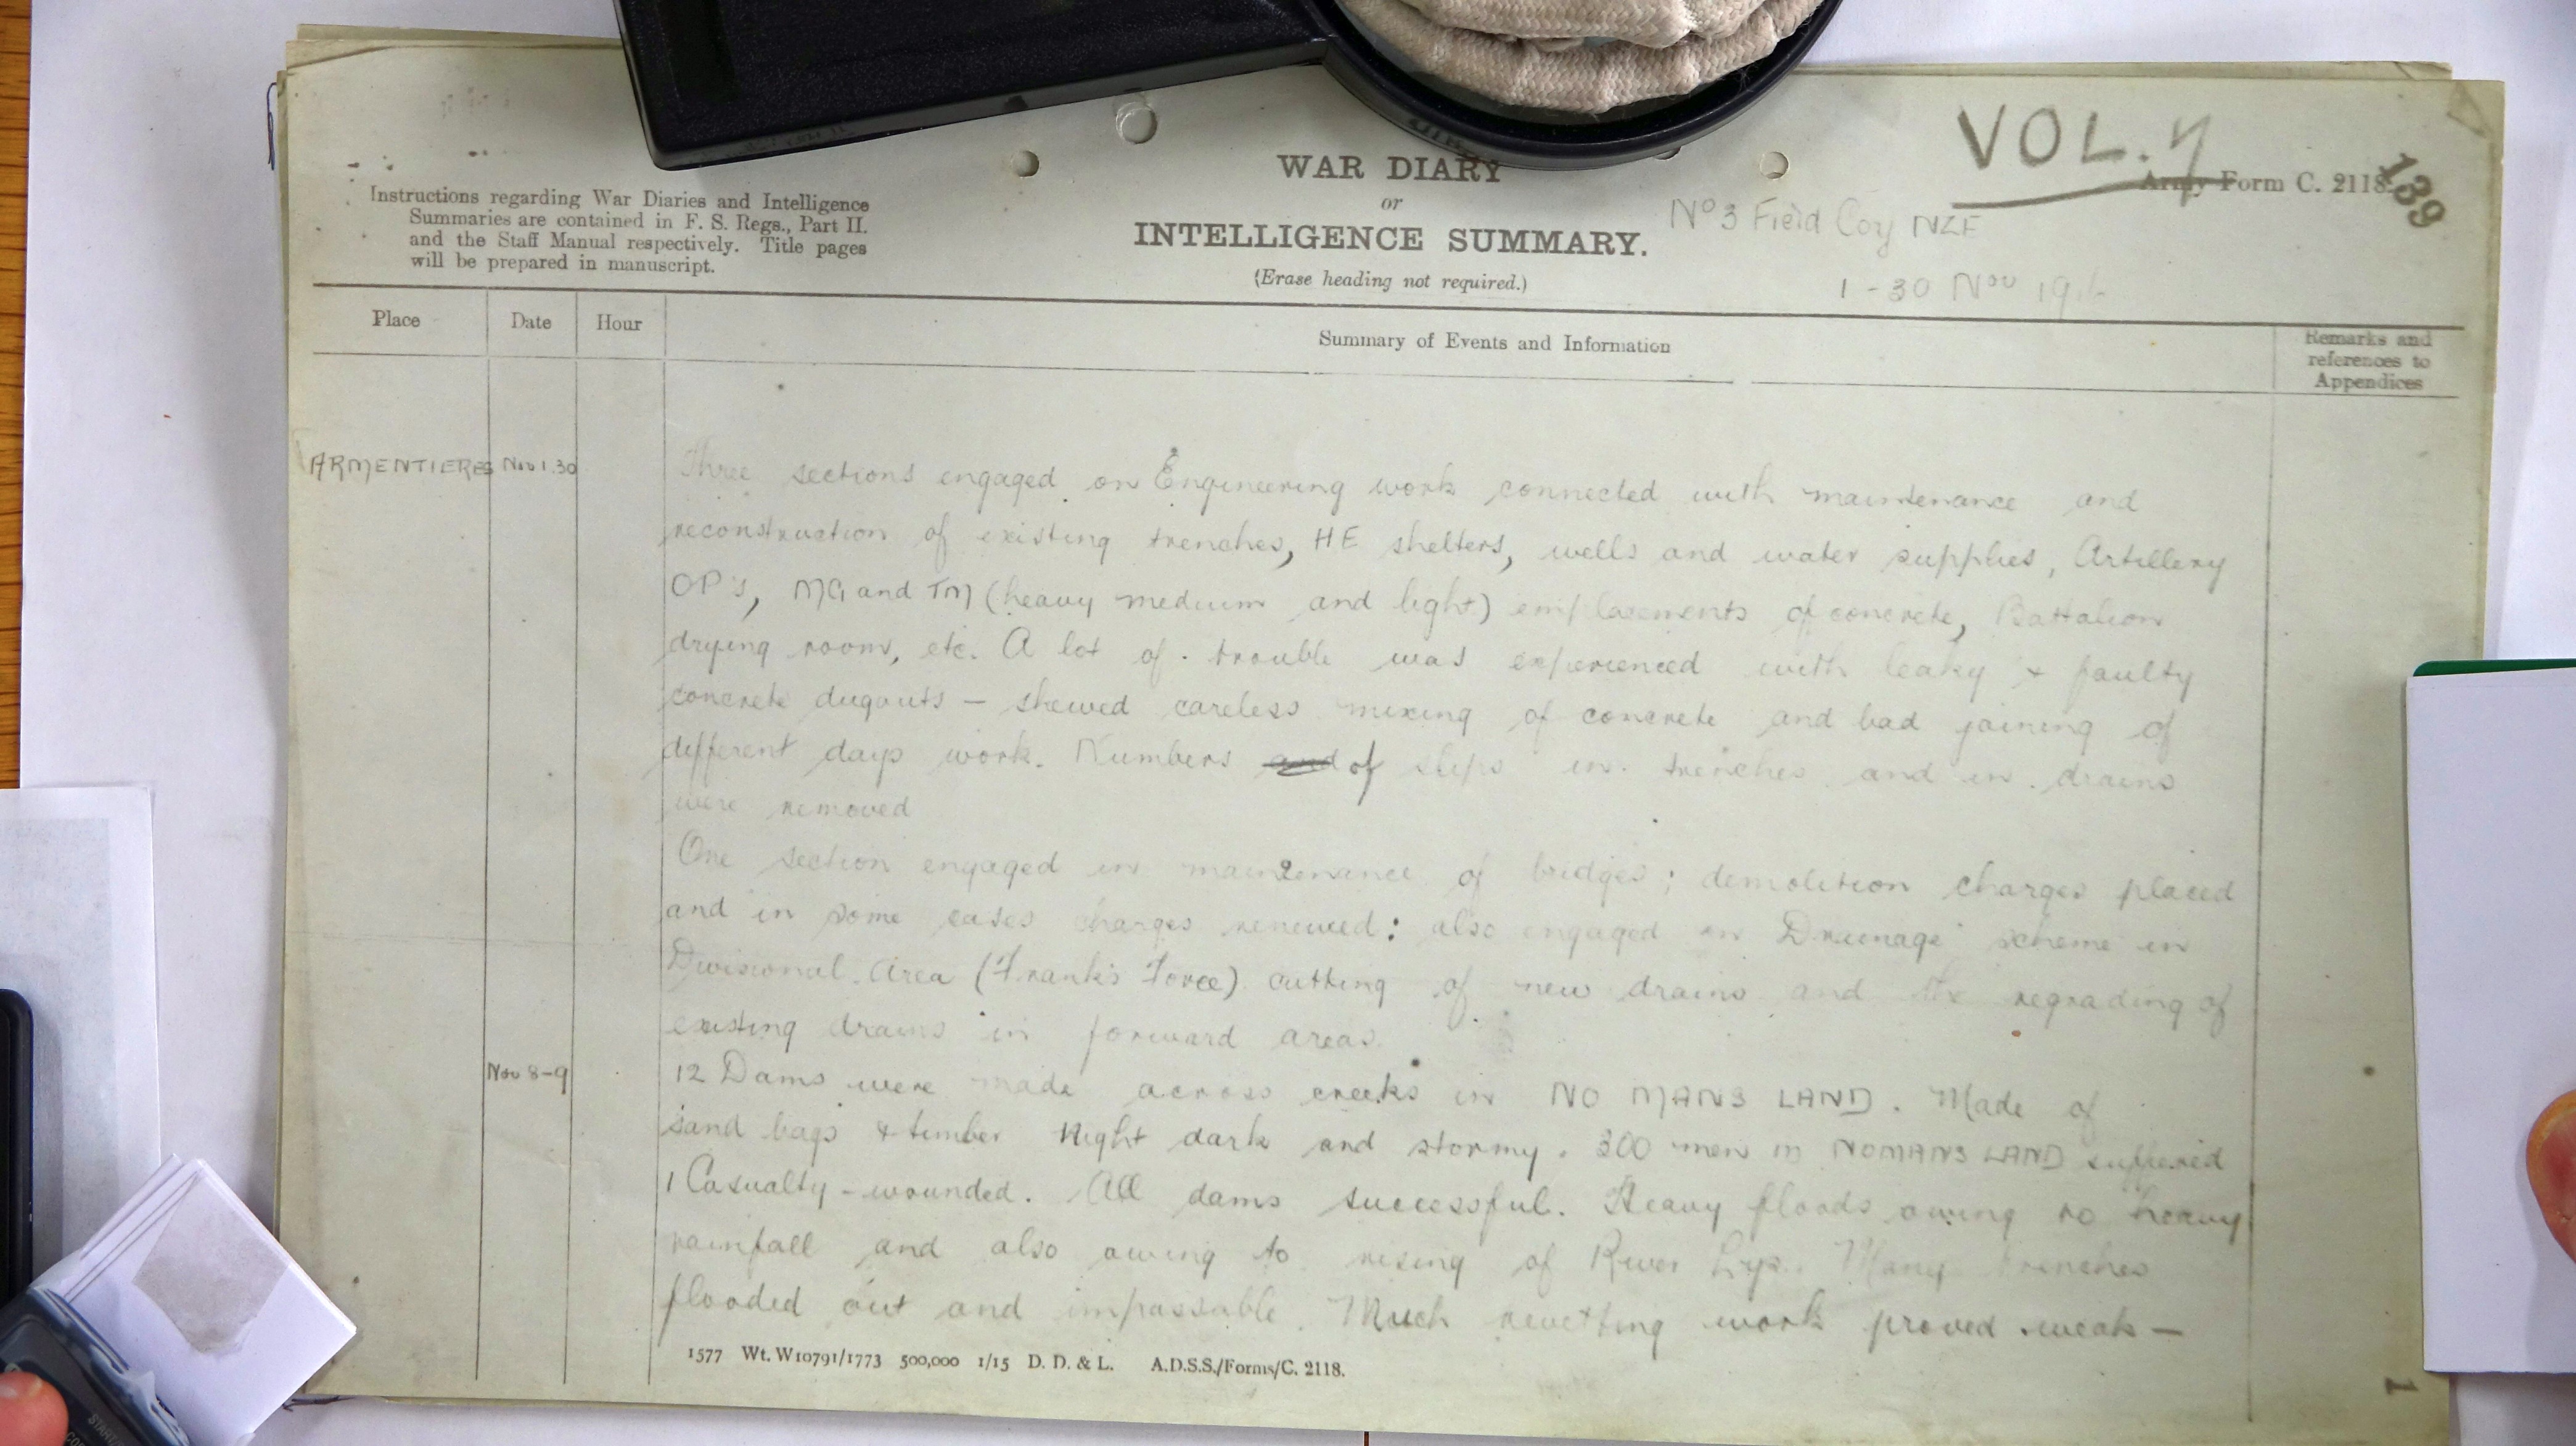 VOL. 7
139
Instructions regarding War Diaries and Intelligence
Summaries are contained in F. S. Regs., Part II.
and the Staff Manual respectively. Title pages
will be prepared in manuscript.
WAR DIARY
or
INTELLIGENCE SUMMARY.
(Erase heading not required.)
Army Form C. 2118.
No 3 Field Coy NZE
1 - 30 Nov 191
Place
Date
Hour
Summary of Events and Information
Remarks and
references to
Appendices
ARMENTIERES Nov 1.30
Three sections engaged on Engineering work connected with maintenance and
reconstruction of existing trenches, HE shelters, wells and water supplies, Artillery
OP's, MG and TM (heavy medium and light) emplacements of concrete, Battalion
drying room, etc. A lot of trouble was experienced with leaky & faulty
concrete dugouts – shewed careless mixing of concrete and bad joining of
different days work. Numbers and of slips in trenches and in drains
were removed
One section engaged in maintenance of bridges; demolition charges placed
and in some cases charges renewed: also engaged on Drainage scheme in
Divisional Area (Frank's Force) cutting of new drains and the regrading of
existing drains in forward areas.
Nov 8-9
12 Dams were made across creeks in NO MANS LAND. Made of
sand bags & timber Night dark and stormy. 300 men in NOMANS LAND suffered
1 Casualty – wounded. All dams successful. Heavy floods owing to heavy
rainfall and also owing to rising of River Lys. Many trenches
flooded out and impassable. Much revetting work proved weak –
1577 Wt. W10791/1773 500,000 1/15 D. D. & L. A.D.S.S./Forms/C. 2118.
1